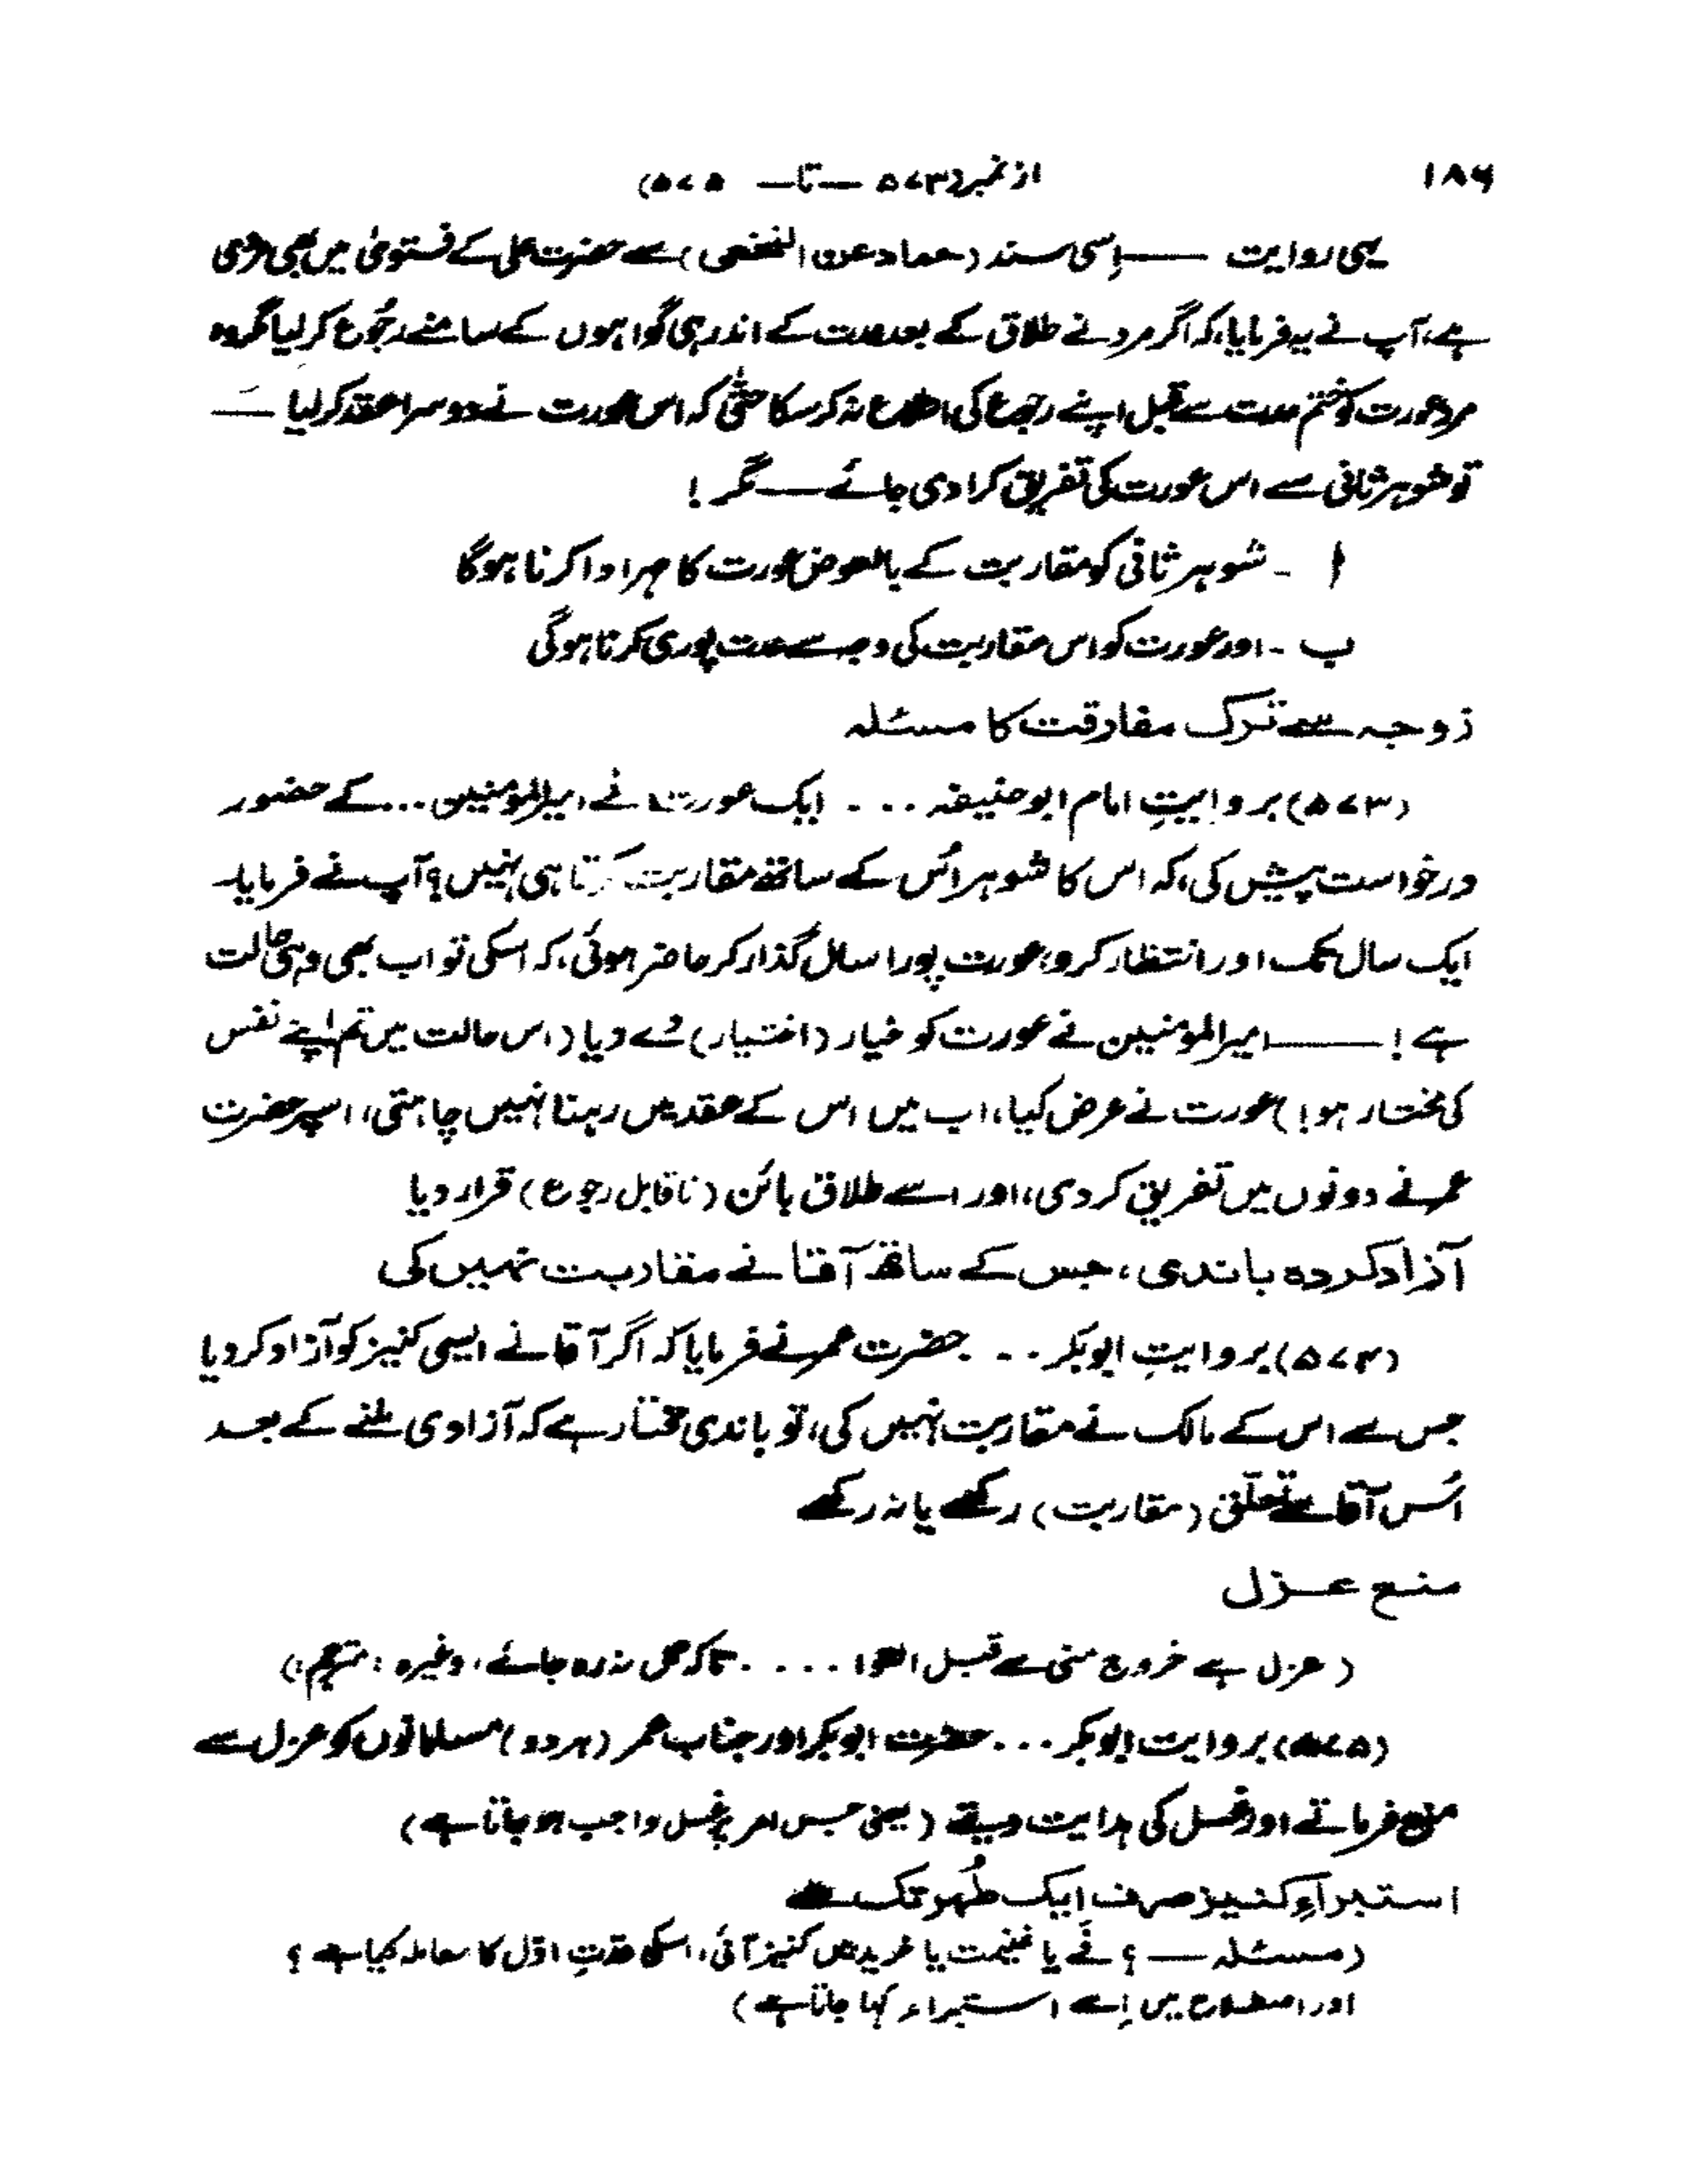 ۱۸۶ از نمبر (۵۷۳ — تا — ۵۷۵)
یہی روایت —— اِسی سند (حماد عن النخعی) سے حضرت علی کے فتویٰ میں بھی مروی
ہے، آپ نے یہ فرمایا، کہ اگر مرد نے طلاق کے بعد عدت کے اندر ہی گواہوں کے سامنے رجُوع کر لیا مگر وہ
مرد عورت کو ختم عدت سے قبل اپنے رجوع کی اطلاع نہ کر سکا حتّٰی کہ اس عورت نے دوسرا عقد کر لیا —
تو شوہر ثانی سے اس عورت کی تفریق کرا دی جائے — مگر!
ا ۔ شوہر ثانی کو مقاربت کے بالعوض عورت کا مہر ادا کرنا ہوگا
ب ۔ اور عورت کو اس مقاربت کی وجہ سے عدت پوری کرنا ہوگی
زوجہ سے ترک مفارقت کا مسئلہ
(۵۷۳) بروایتِ امام ابو حنیفہ ... ایک عورت نے امیرالمؤمنین ... کے حضور
درخواست پیش کی، کہ اس کا شوہر اُس کے ساتھ مقاربت کرتا ہی نہیں؟ آپ نے فرمایا۔
ایک سال تک اور انتظار کرو، عورت پورا سال گذار کر حاضر ہوئی، کہ اسکی تو اب بھی وہی حالت
ہے! —— امیرالمؤمنین نے عورت کو خیار (اختیار) دے دیا (اس حالت میں تم اپنے نفس
کی مختار ہو!) عورت نے عرض کیا، اب میں اس کے عقد میں رہنا نہیں چاہتی، اسپر حضرت
عمر نے دونوں میں تفریق کر دی، اور اسے طلاق بائن (ناقابل رجوع) قرار دیا
آزاد کردہ باندی، جس کے ساتھ آقا نے مقاربت نہیں کی
(۵۷۴) بروایتِ ابوبکر ... حضرت عمر نے فرمایا کہ اگر آقا نے ایسی کنیز کو آزاد کر دیا
جس سے اس کے مالک نے مقاربت نہیں کی، تو باندی مختار ہے کہ آزادی ملنے کے بعد
اُس آقا سے تعلّق (مقاربت) رکھے یا نہ رکھے
منع عزل
(عزل ہے خروج منی سے قبل .... تاکہ حمل نہ رہ جائے، وغیرہ: مترجم:)
(۵۷۵) بروایت ابوبکر ... حضرت ابوبکر اور جناب عمر (ہر دو) مسلمانوں کو عزل سے
منع فرماتے اور غسل کی ہدایت دیتے (یعنی جس امر پر غسل واجب ہو جاتا ہے)
استبراءِ کنیز صرف ایک طُہر تک ہے
(مسئلہ — ؟ فَے یا غنیمت یا خرید میں کنیز آئی، اسکی عدّتِ اوّل کا معاملہ کیا ہے؟
اور اصطلاح میں اِسے استبراء کہا جاتا ہے)